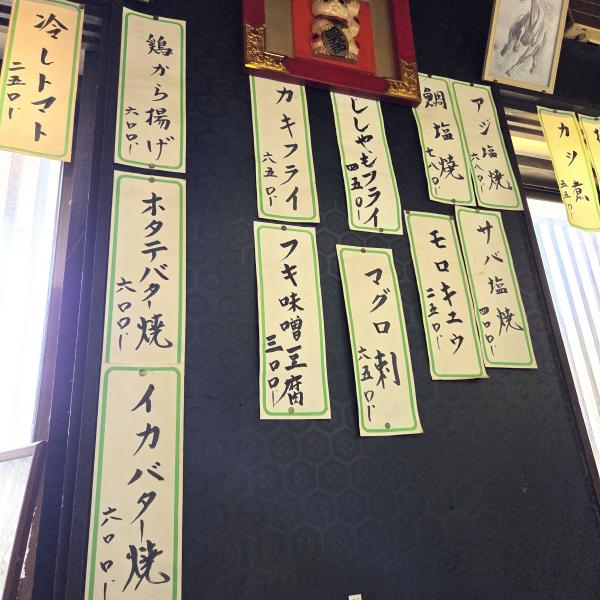 冷しトマト
二五〇円
鶏から揚げ
六〇〇円
ホタテバター焼
六〇〇円
イカバター焼
六〇〇円
カキフライ
六五〇円
フキ味噌豆腐
三〇〇円
ししゃもフライ
四五〇円
マグロ刺
六五〇円
鯛塩焼
七八〇円
モロキュウ
二五〇円
アジ塩焼
六八〇円
サバ塩焼
四〇〇円
カシ煮
五五〇円